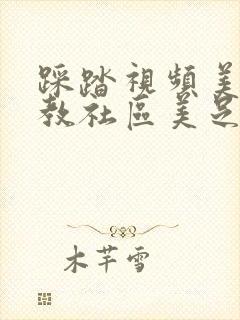 踩踏視頻美
教社區美足
木芊雪